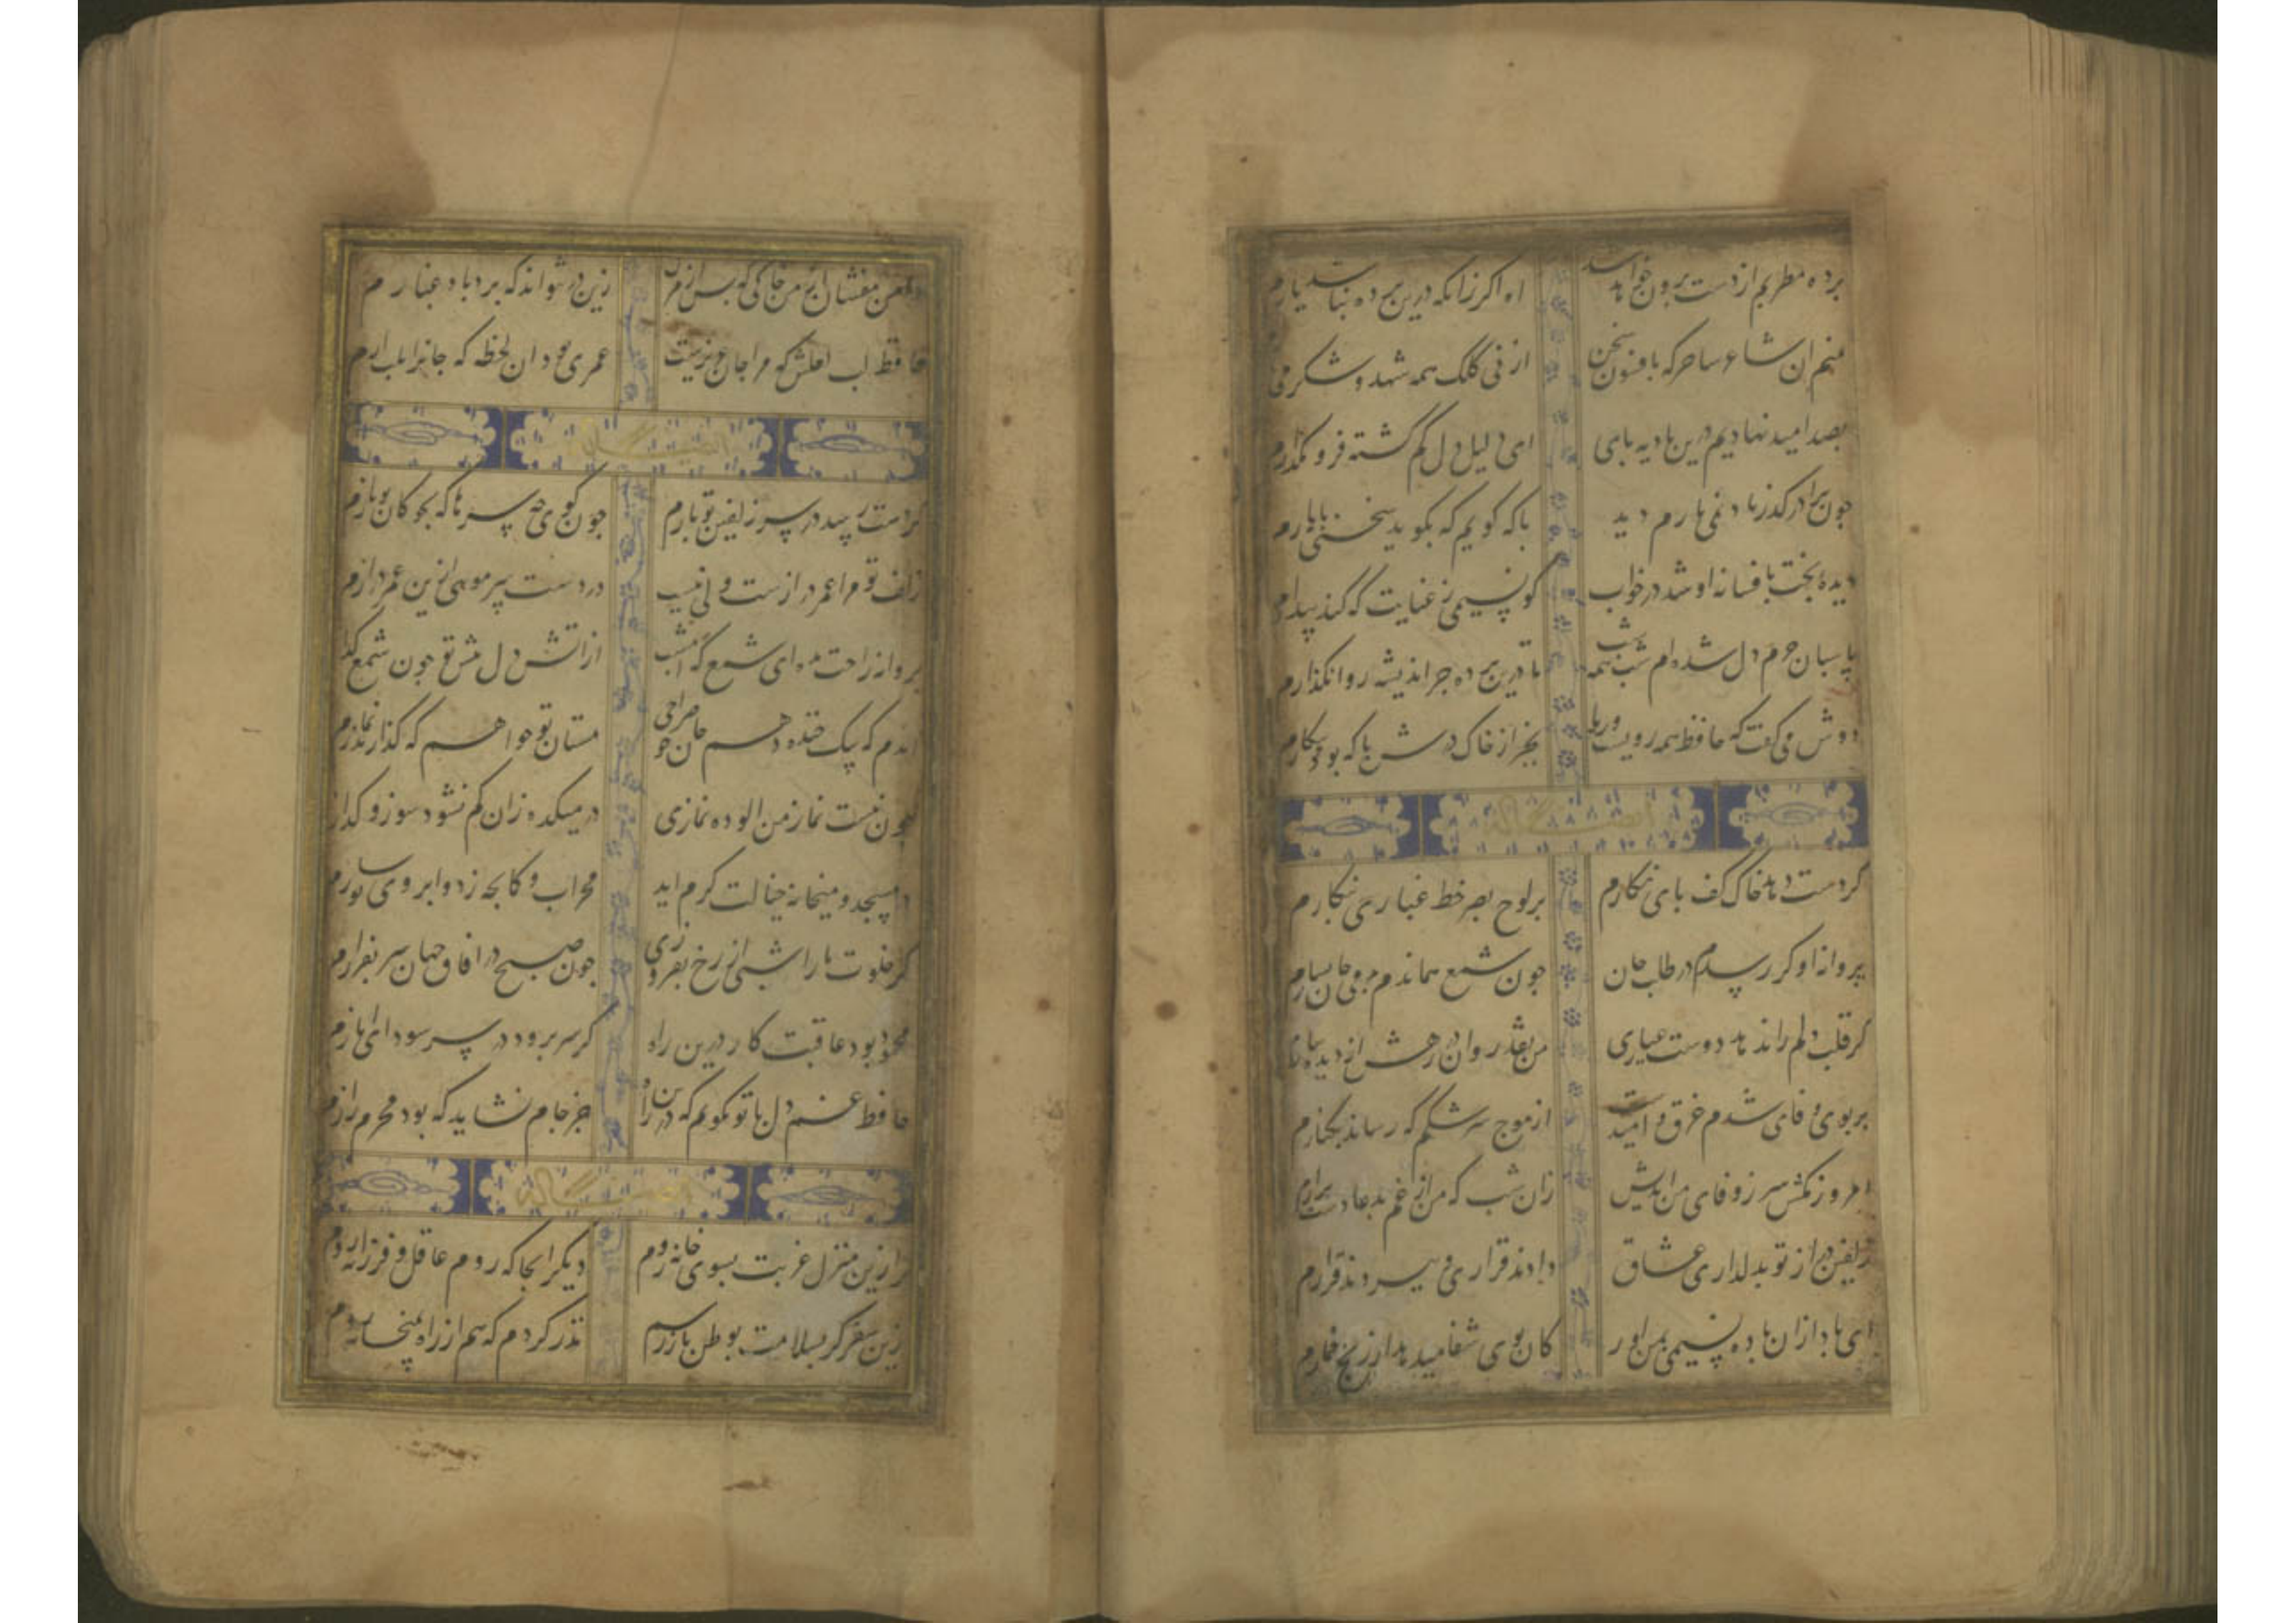 برده مطربم از دست برون خواهد شد
اه اکر زانکه درین برده نباشد یارم
منم ان شاعر ساحر که بافسون سخن
از نی کلک همه شهد و شکر می
بصد امید نهادیم درین بادیه بای
ای دلیل دل کم کشته فرو مکذارم
جون ترا در کذر باد نمی یارم دید
با که کویم که بکوید سخنی با یارم
دیده بخت بافسانه او شد در خواب
کو نسیمی ز عنایت که کند بیدارم
پاسبان حرم دل شده ام شب همه شب
تا درین برده جز اندیشه او نکذارم
دوش می کفت که حافظ همه رویست و ریا
بجز از خاک درش با که بود کارم
ایضا له
کر دست دهد خاک کف بای نکارم
بر لوح بصر خط غباری بنکارم
پروانه او کر رسدم در طلب جان
جون شمع هماندم بدمی جان بسپارم
کر قلب دلم را ننهد دوست عیاری
من نقد روان در رهش از دیده
بر بوی وفای شدم غرق و امیدست
از موج سرشکم که رساند بکنارم
امروز مکش سر ز وفای من و اندیش
زان شب که من از غم بدعا دست برارم
زلفین دراز تو بدلداری عشاق
دادند قراری و ببردند قرارم
ای باد ازان باده نسیمی بمن اور
کان بوی شفا میدهد از رنج خمارم
دامن مفشان از من خاکی که بس از من
زین در نتواند که برد باد غبارم
حافظ لب لعلش که مرا جان عزیزست
عمری بود ان لحظه که جانرا بلب ارم
ایضا له
کر دست رسد در سر زلفین تو بازم
جون کوی چه سرها که بجوکان تو بازم
زلف تو مرا عمر درازست ولی نیست
در دست سر مویی ازین عمر درازم
بروانه راحت بده ای شمع که امشب
از اتش دل بیش تو جون شمع کدازم
اندم که بیک خنده دهم جان جو صراحی
مستان تو خواهم که کذارند نمازم
جون نیست نماز من الوده نمازی
در میکده زان کم نشود سوز و کدازم
در مسجد و میخانه خیالت کرم اید
محراب و کمانجه ز دو ابروی تو سازم
کر خلوت ما را شبی از رخ بفروزی
جون صبح در افاق جهان سر بفرازم
محمود بود عاقبت کار درین راه
کر سر برود در سر سودای ایازم
حافظ غم دل با تو نکویم که درین راه
جز جام نشاید که بود محرم رازم
ایضا له
کر ازین منزل غربت بسوی خانه روم
دیکر انجا که روم عاقل و فرزانه روم
زین سفر کر بسلامت بوطن باز رسم
نذر کردم که هم از راه بمیخانه روم